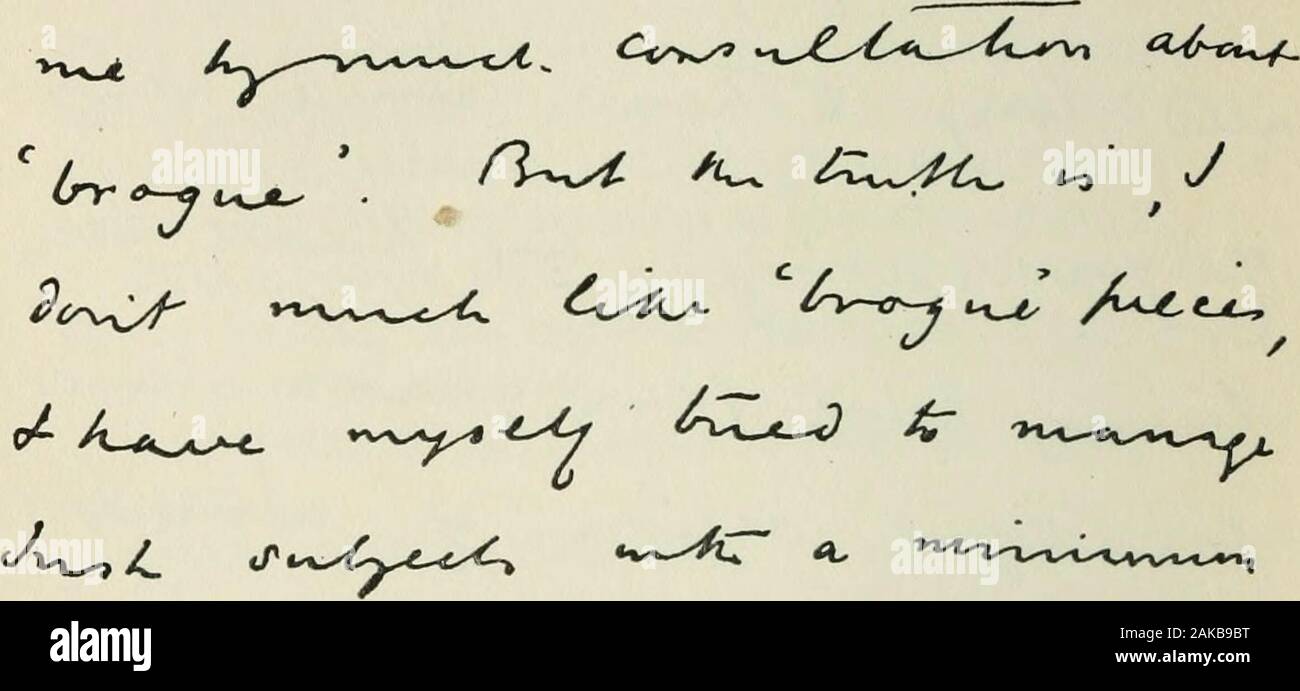 me by much consultation about
'brogue'. But the truth is, I
don't much like 'brogue' pieces,
& have myself tried to manage
Irish subjects with a minimum
alamy
Image ID: 2AKB9BT
www.alamy.com